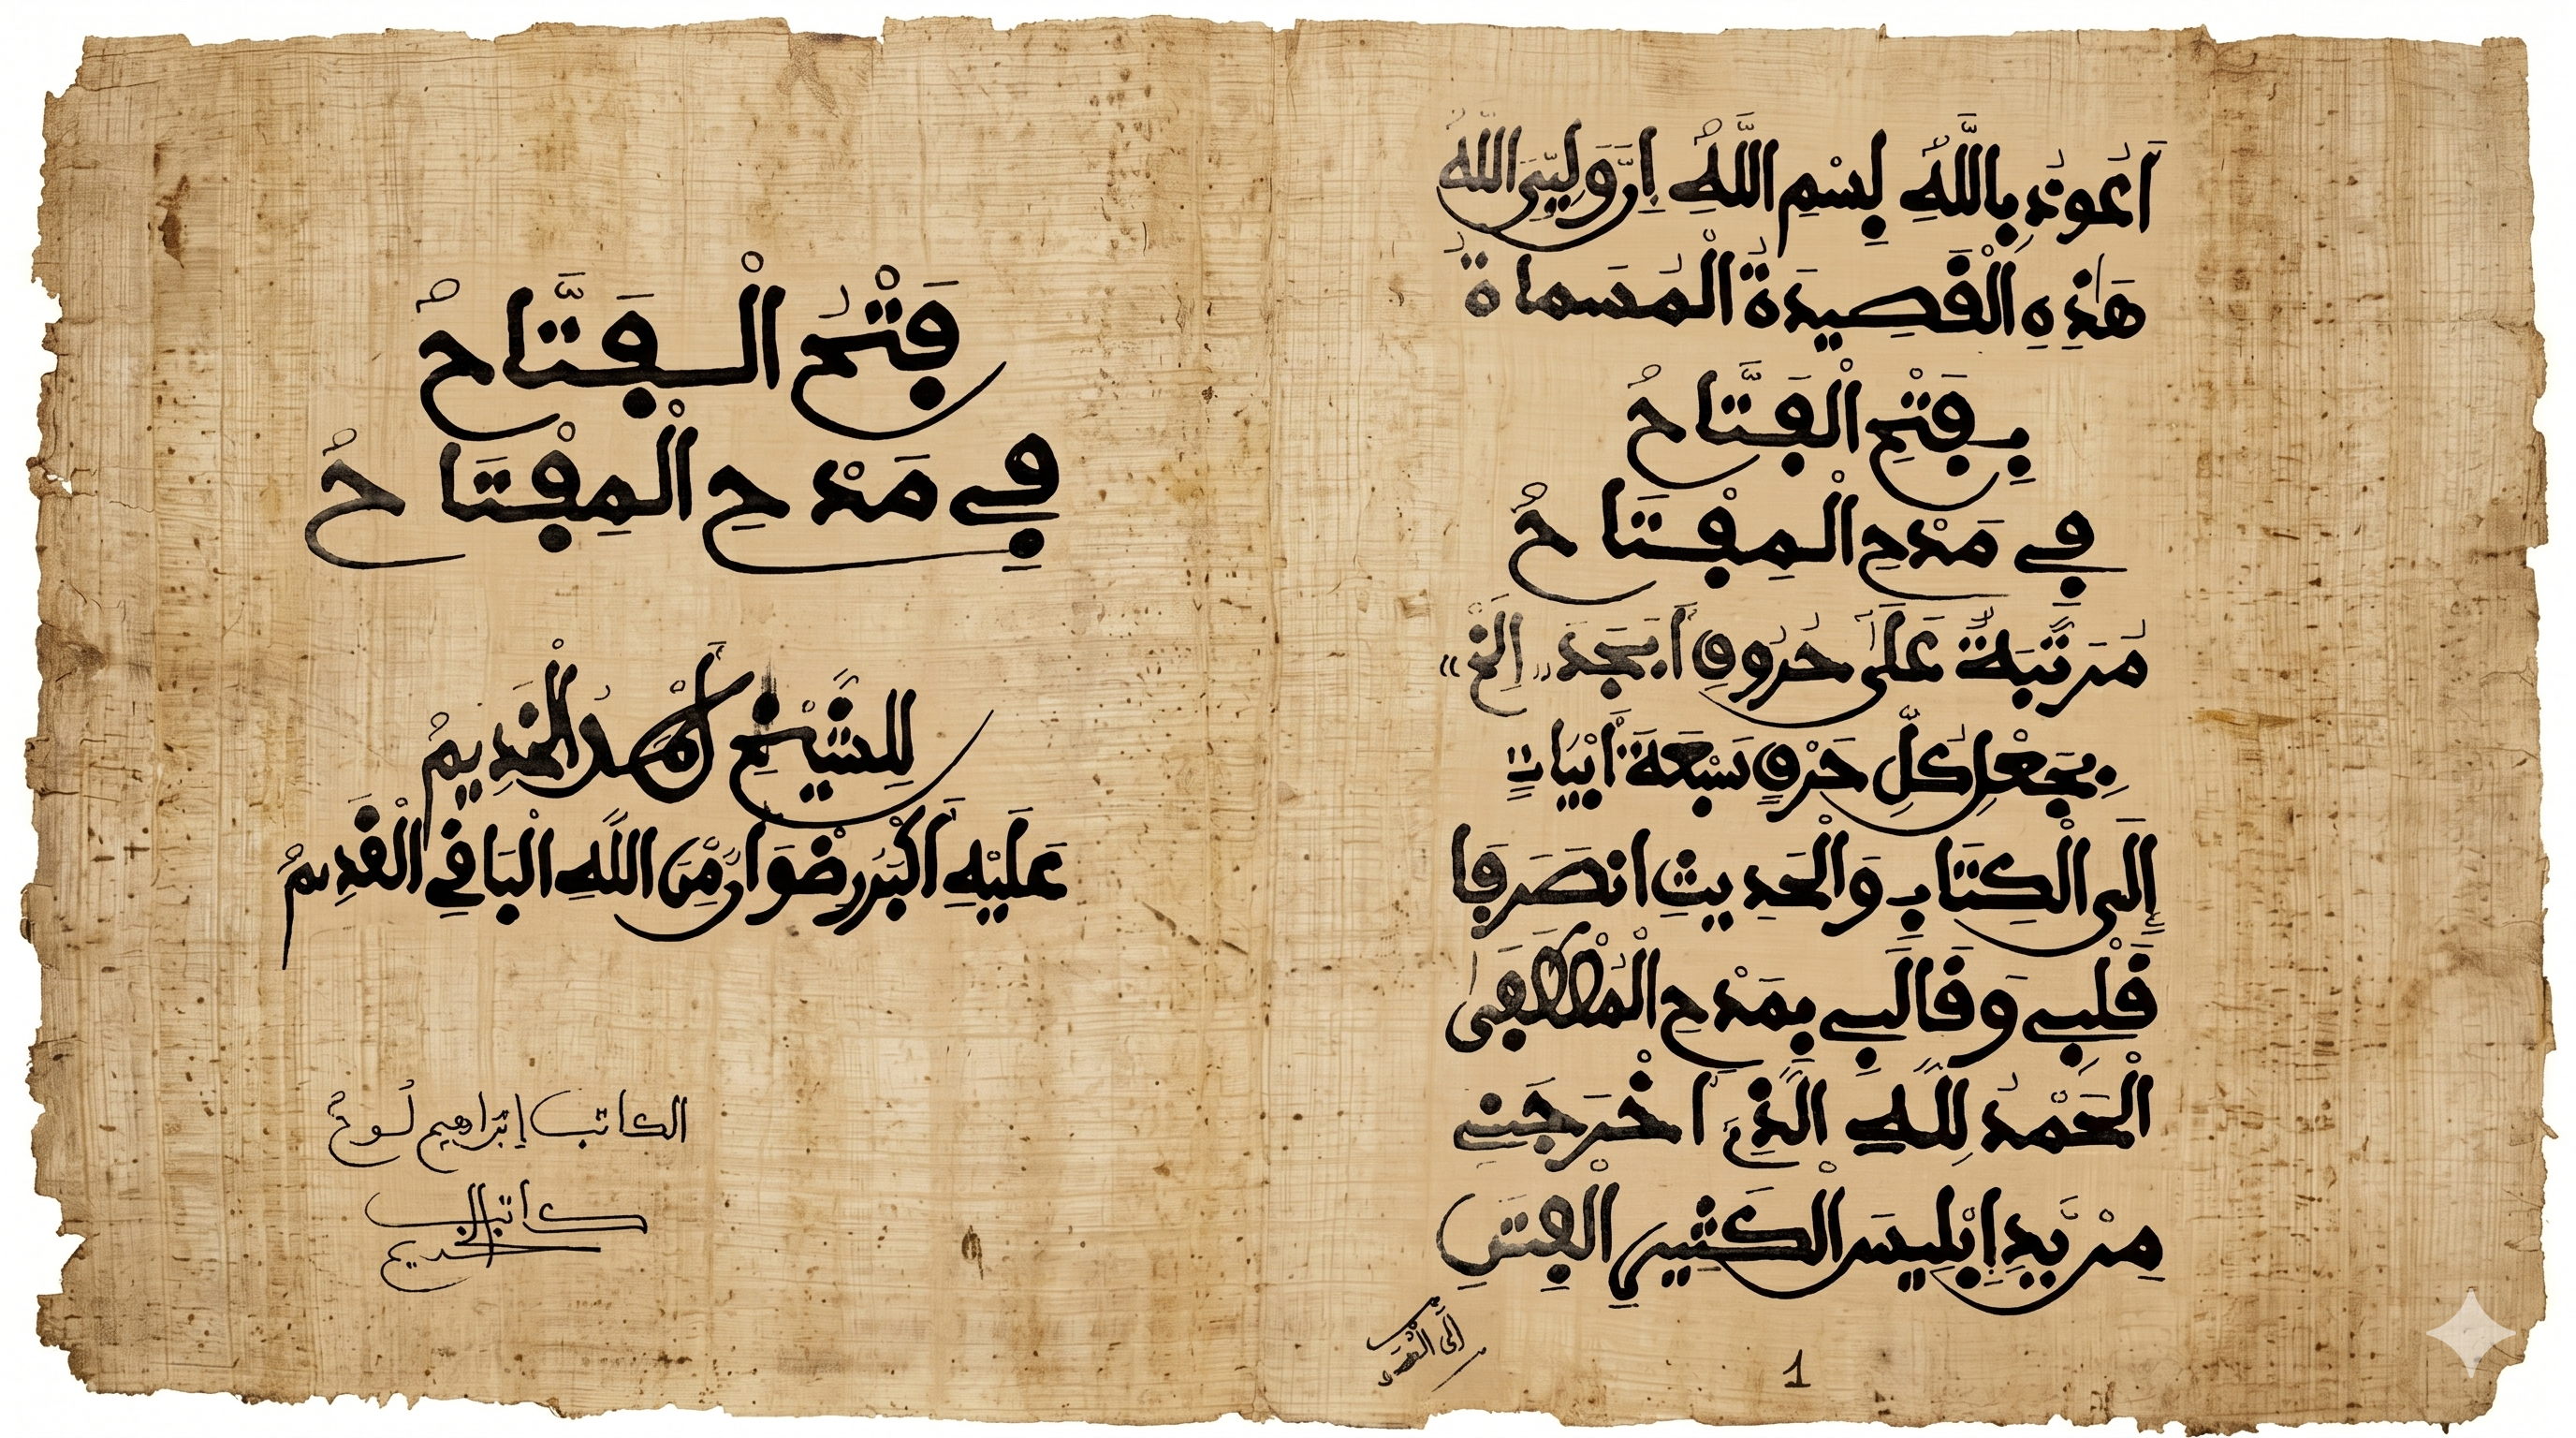 فَتْحُ الْفَتَّاحُ
فِي مَدْحِ الْمِفْتَاحُ
لِلشَّيْخِ أَحْمَدُ الْخَدِيمُ
عَلَيْهِ أَكْبَرُ رِضْوَانٍ مِّنَ اللَّهِ الْبَاقِي الْقَدِيمُ
الكاتب إبراهيم لوح
كاتب الخديم
أَعُوذُ بِاللَّهِ بِسْمِ اللَّهِ
هَذِهِ الْقَصِيدَةُ الْمُسَمَاةُ
بِفَتْحِ الْفَتَّاحُ
فِي مَدْحِ الْمِفْتَاحُ
مُرَتَّبَةٌ عَلَى حُرُوفِ أَبَجَدَ الخ
بِجَعْلِ كُلِّ حَرْفٍ سَبْعَةَ أَبْيَاتٍ
إِلَى الْكِتَابِ وَالْحَدِيثِ انصَرَفَا
قَلْبِي وَقَالَبِي بِمَدْحِ الْمُصْطَفَى
الْحَمْدُ لِلَّهِ الَّذِي أَخْرَجَنِي
مِنْ يَدِ إِبْلِيسَ الْكَثِيرِ الْفِتَنِ
1